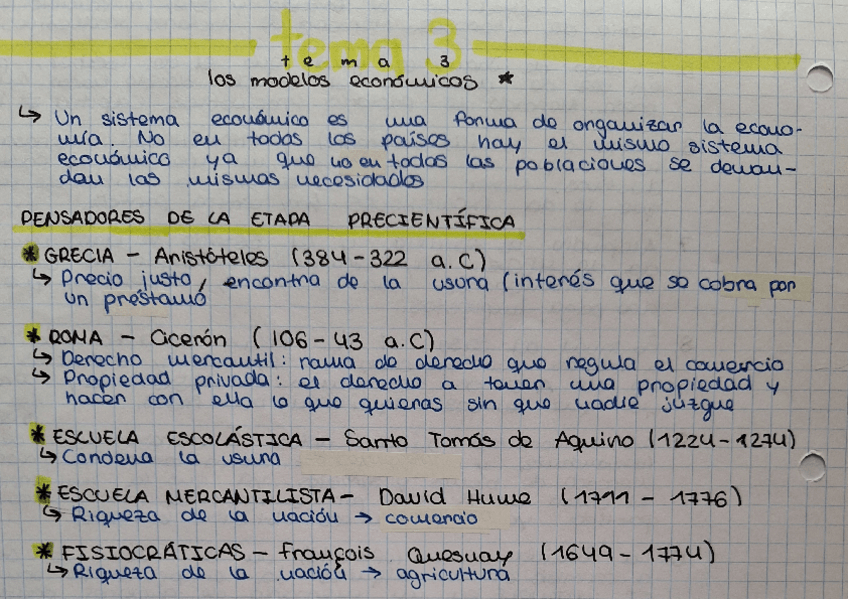 tema 3
tema 3
los modelos económicos *
↳ Un sistema económico es una forma de organizar la econo-
mía. No en todos los países hay el mismo sistema
económico ya que no en todas las poblaciones se deman-
dan las mismas necesidades
PENSADORES DE LA ETAPA PRECIENTÍFICA
* GRECIA – Aristóteles (384-322 a.C)
↳ Precio justo, encontra de la usura (interés que se cobra por
un préstamo
* ROMA – Cicerón (106-43 a.C)
↳ Derecho mercantil: rama de derecho que regula el comercio
↳ Propiedad privada: el derecho a tener una propiedad y
hacer con ella lo que quieras sin que nadie juzgue
* ESCUELA ESCOLÁSTICA – Santo Tomás de Aquino (1224-1274)
↳ Condena la usura
* ESCUELA MERCANTILISTA – David Hume (1711 - 1776)
↳ Riqueza de la nación → comercio
* FISIOCRÁTICAS – François Quesnay (1649-1774)
↳ Riqueza de la nación → agricultura